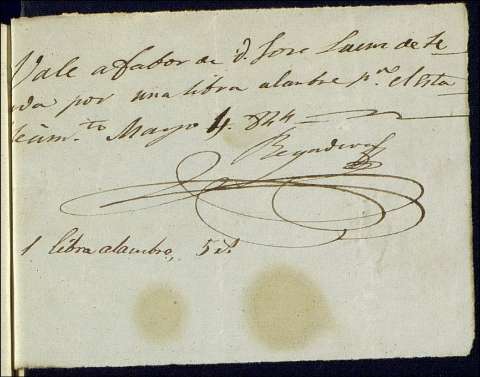 Vale a fabor de d. Jose Saenz de Te
jada por una libra alambre pa. el Esta
blecim.to Mayo 4. 844
1 libra alambre, 5 rs.